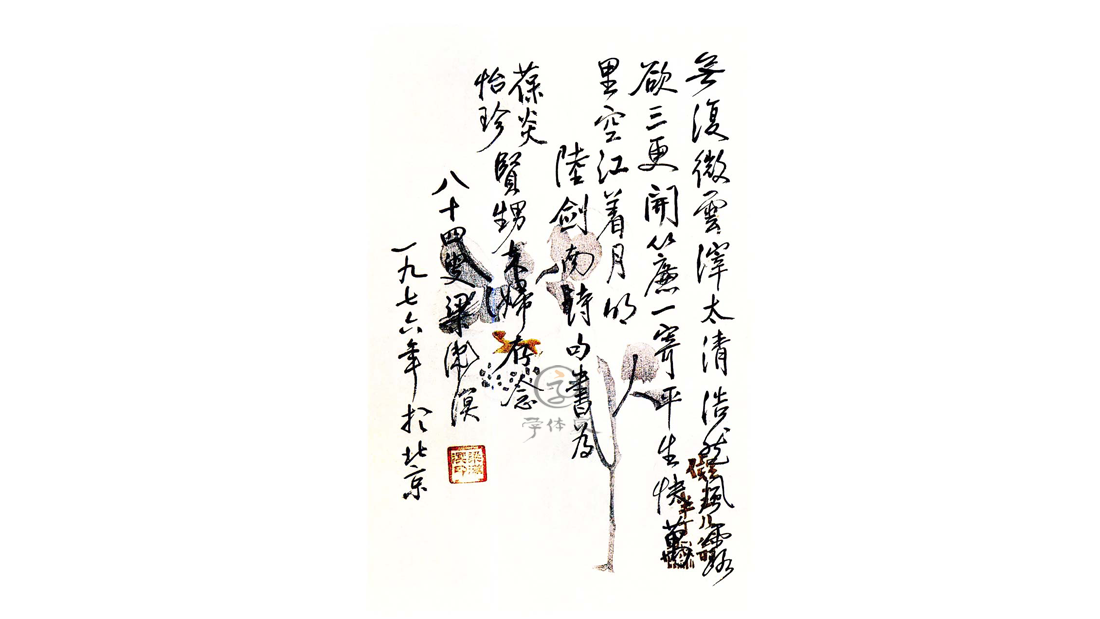 無復微雲滓太清浩然風露
欲三更開簾一寄平生快萬
里空江着月明
陸劍南詩句書為
葆炎
怡珍
賢甥
夫婦存念
八十四叟梁漱溟
一九七六年於北京
字体